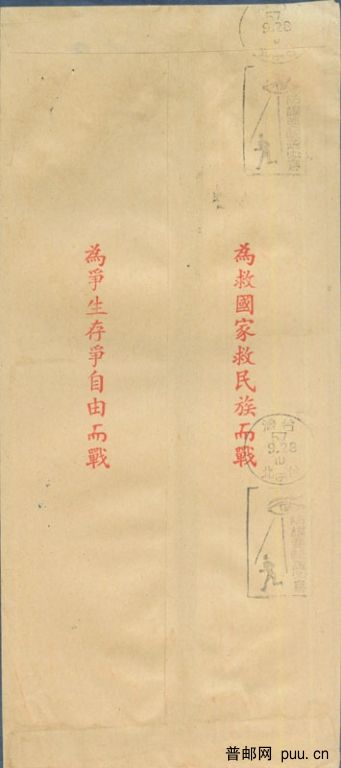 為救國家救民族而戰
為爭生存爭自由而戰
57
9.28
台
北
57
9.28
北
普邮网 puu.cn